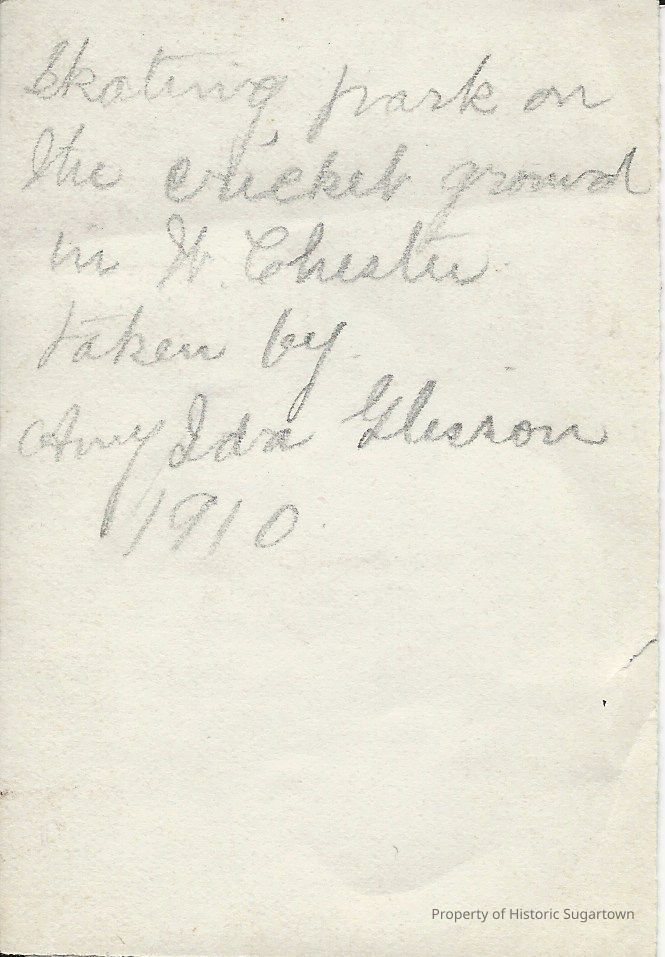 Skating park on
the cricket ground
in W. Chester
taken by
Amy Ida Gleason
1910
Property of Historic Sugartown